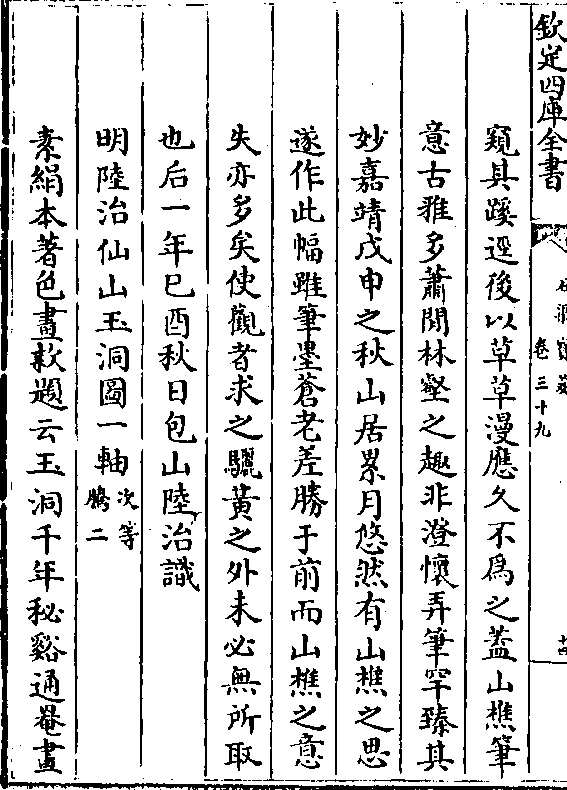 欽定四庫全書
卷三十九
十四
窺其蹊逕後以草草漫應久不為之蓋山樵筆
意古雅多蕭閒林壑之趣非澄懷弄筆罕臻其
妙嘉靖戊申之秋山居累月悠然有山樵之思
遂作此幅雖筆墨蒼老差勝于前而山樵之意
失亦多矣使觀者求之驪黃之外未必無所取
也后一年巳酉秋日包山陸治識
明陸治仙山玉洞圖一軸次等騰二
素絹本著色畫款題云玉洞千年秘谿通罨畫